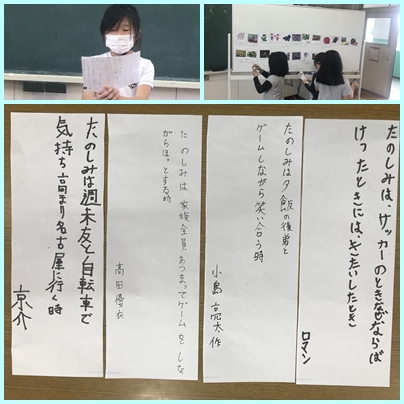 たのしみは、サッカーのときなぜならば
けったときには、きたいしたとき
ロマン
たのしみは夕飯の後弟と
ゲームしながら笑い合う時
小島亮太作
たのしみは家族全員あつまってゲームをしな
がらほっとする時
高田優衣
たのしみは週末友と自転車で
気持ち高まり名古屋に行く時
京介